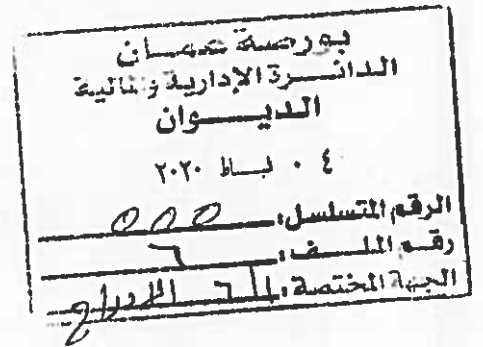 بورصة عمان
الدائرة الإدارية والمالية
الديوان
٠٤ شباط ٢٠٢٠
الرقم المتسلسل:
رقم الملف: ٦
الجهة المختصة: